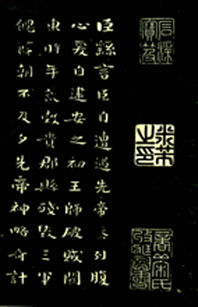 米芾之印
臣繇言臣自遭遇先帝忝列腹
心爰自建安之初王師破賊關
東時年荒穀貴郡縣殘毀三軍
餽饟朝不及夕先帝神略奇計